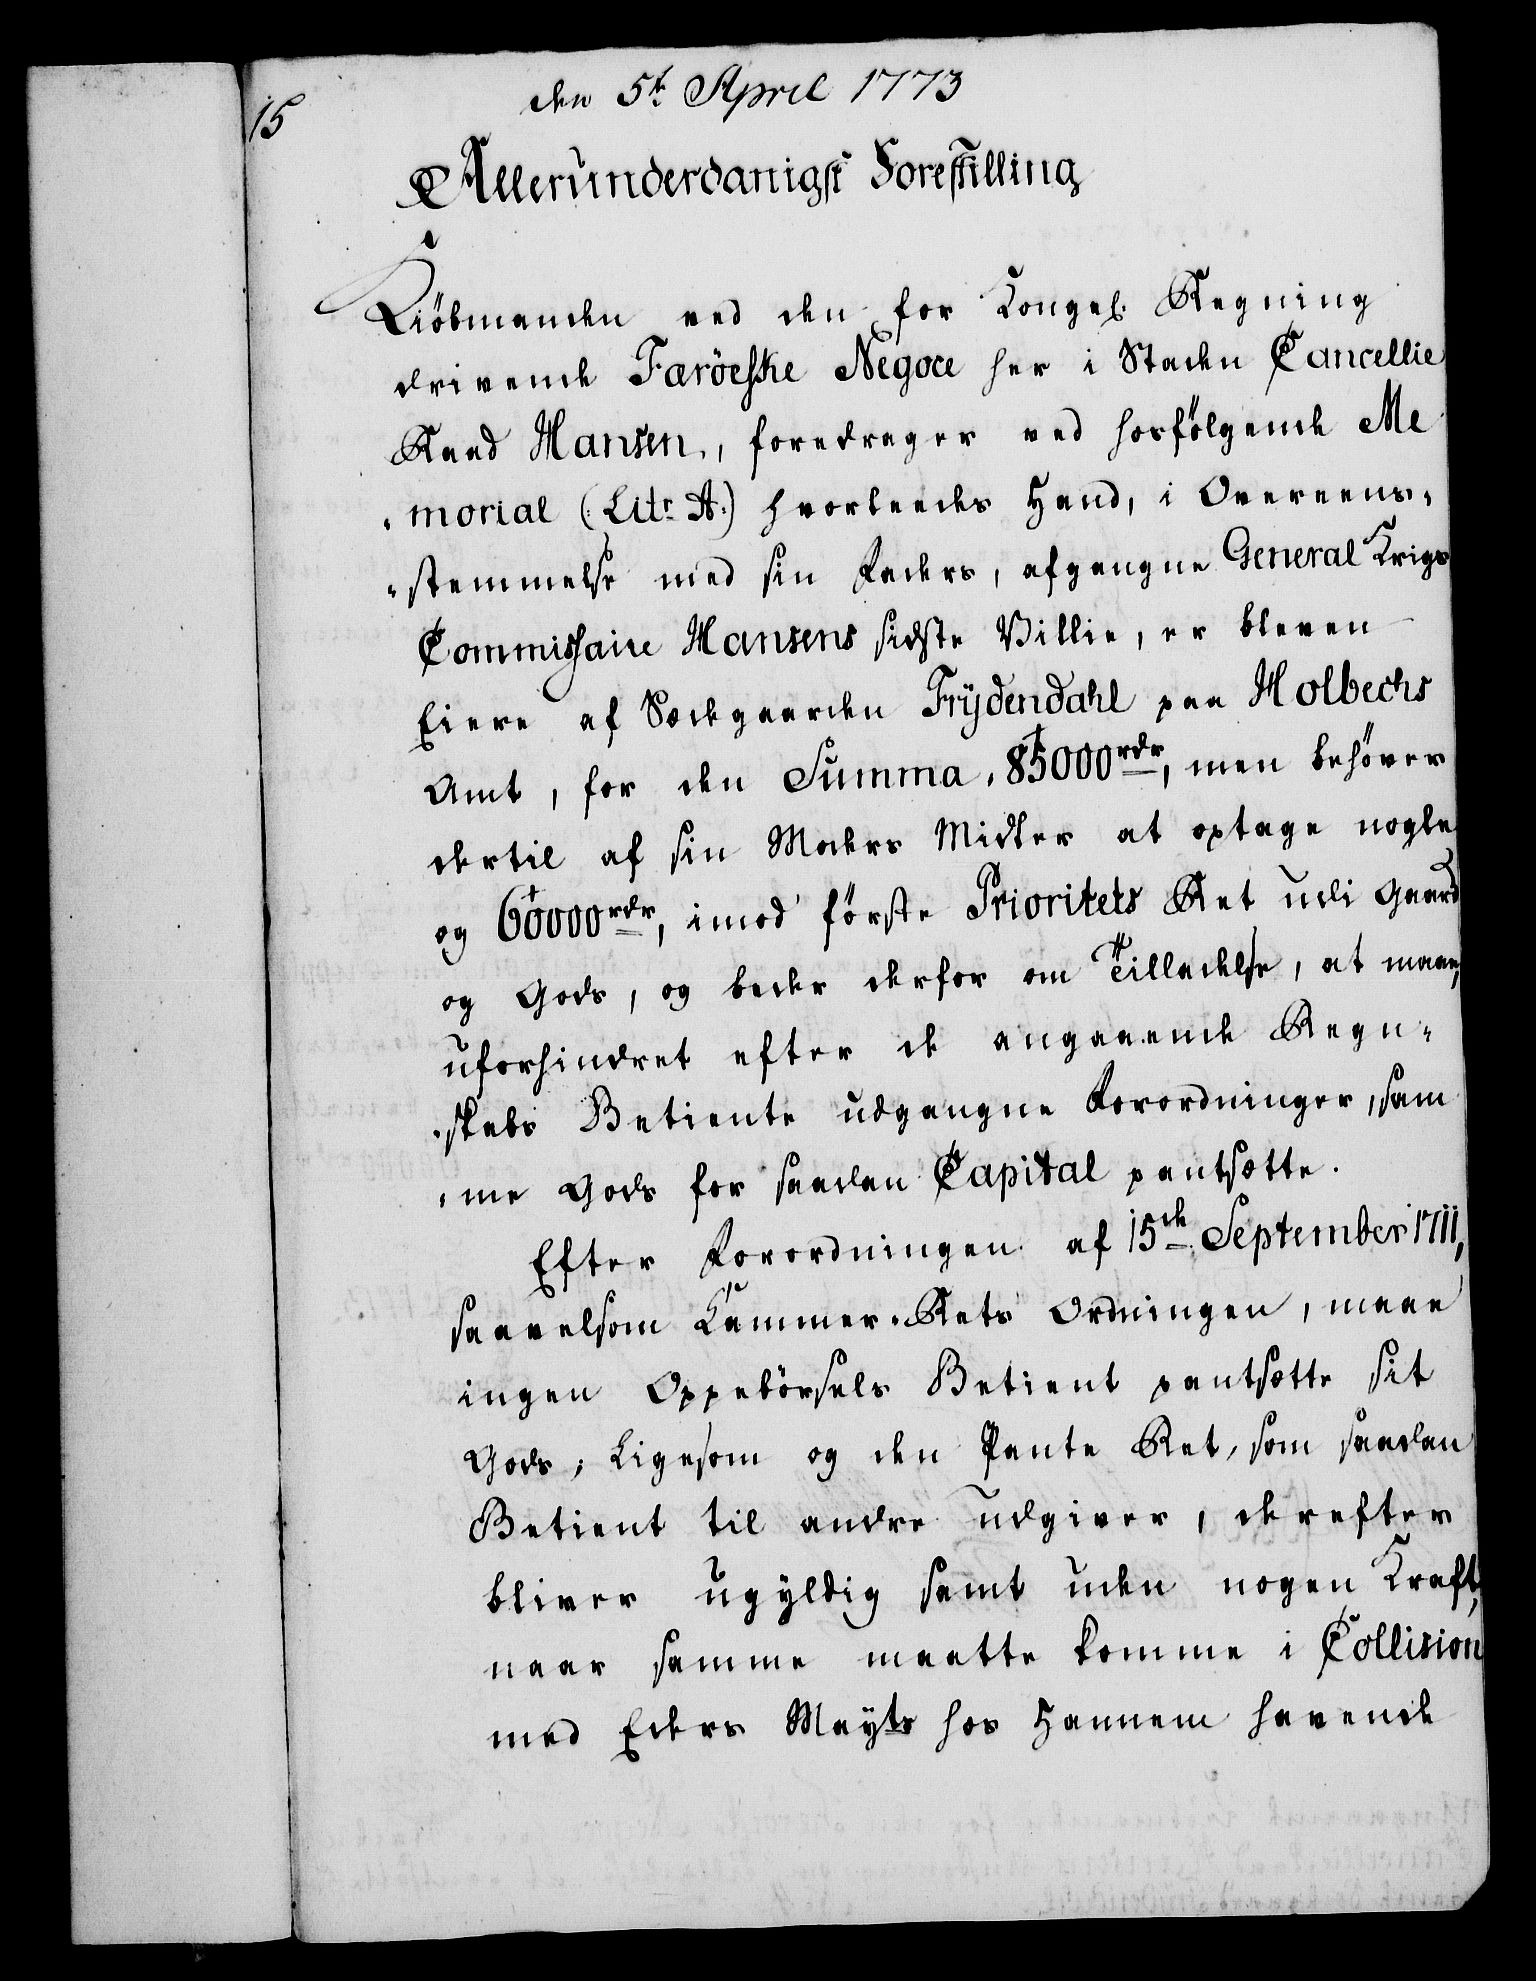 15
den 5t. April 1773
Allerunderdanigst Forestilling
Kiöbmanden ved den for Kongel. Regning
drivende Færöeske Negoce her i Staden Cancellie
Raad Hansen, foredrager ved hosfölgende Me
morial (: Litr. A:) hvorleedes Hand, i Overeens-
stemmelse med sin Faders, afgangne General Krigs
Commissaire Hansens sidste Villie, er bleven
Eiere af Sædegaarden Frÿdendahl paa Holbechs
Amt, for den Summa, 85000 rdr, men behöver
dertil af sin Moders Midler at optage nogle
og 60000 rdr, imod förste Prioritets Ret udi Gaard
og Gods, og beder derfor om Tilladelse, at maae,
uforhindret efter de angaaende Regn-
skabs Betiente udgangne Forordninger, sam
me Gods for saadan Capital pantsætte.
Efter Forordningen af 15de September 1711,
saavelsom Kammer-Rets Ordningen, maae
ingen Oppebörsels Betient pantsætte sit
Gods, Ligesom og den Pante Ret, som saadan
Betient til andre udgiver, derefter
bliver ugyldig samt uden nogen Kraft,
naar samme maatte komme i Collision
med Eders Mayts hos Hannem havende